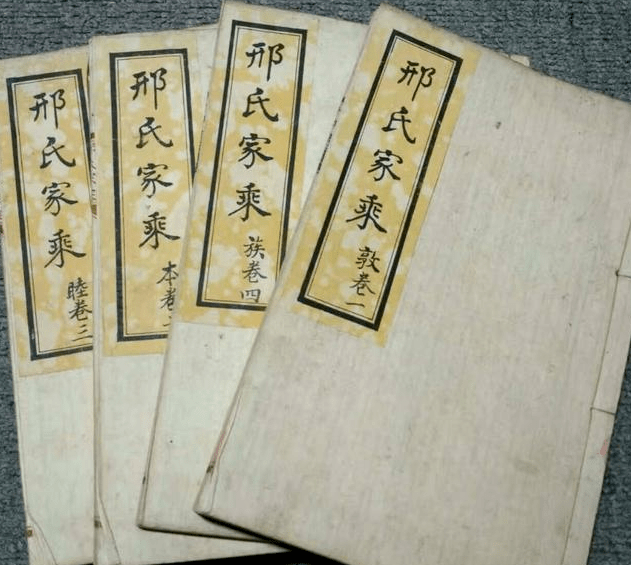 邢氏家乘
敦卷一
邢氏家乘
族卷四
邢氏家乘
本卷
邢氏家乘
睦卷三